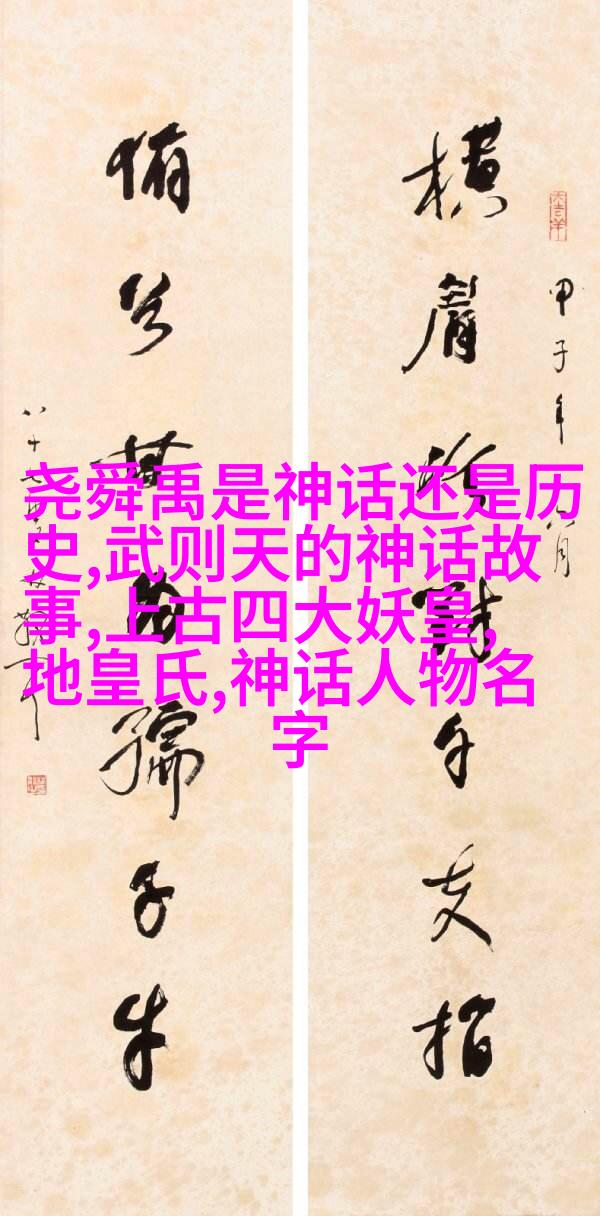 甲子年八月
横眉冷对千夫指
俯首甘为孺子牛
尧舜禹是神话还是历
史,武则天的神话故
事,上古四大妖皇,
地皇氏,神话人物名
字